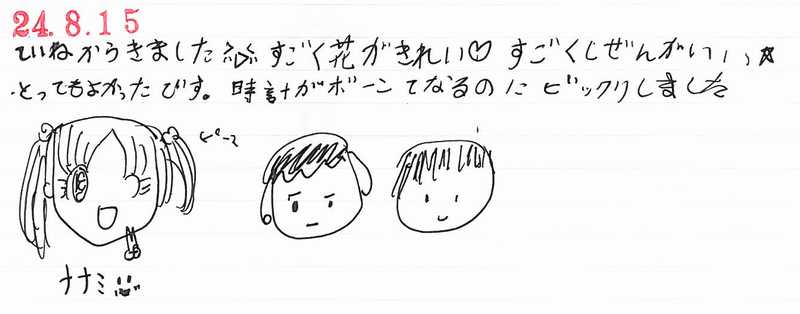 24.8.15
ていねからきました すごく花がきれい♡ すごくしぜんがいっ、、☆
とってもよかったです。時計がボーンてなるのにビックリしました
ピース
ナナミ